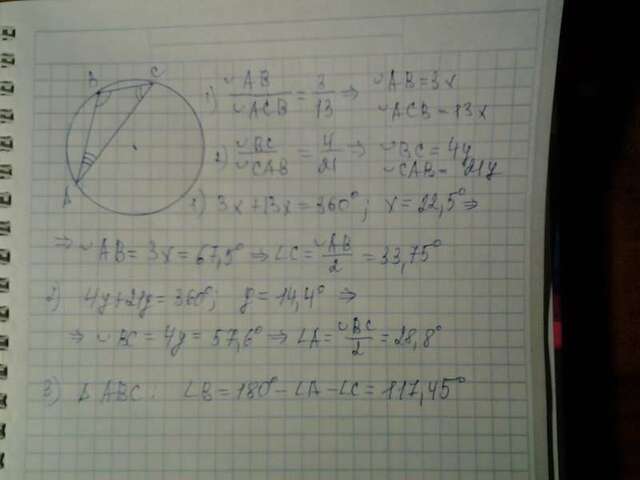 B C
A
1) ◡AB / ◡ACB = 3/13 ⇒ ◡AB = 3x
◡ACB = 13x
2) ◡BC / ◡CAB = 4/21 ⇒ ◡BC = 4y
◡CAB = 21y
1) 3x + 13x = 360°; x = 22,5° ⇒
⇒ ◡AB = 3x = 67,5° ⇒ ∠C = ◡AB/2 = 33,75°
2) 4y + 21y = 360°; y = 14,4° ⇒
⇒ ◡BC = 4y = 57,6° ⇒ ∠A = ◡BC/2 = 28,8°
3) Δ ABC: ∠B = 180° - ∠A - ∠C = 117,45°